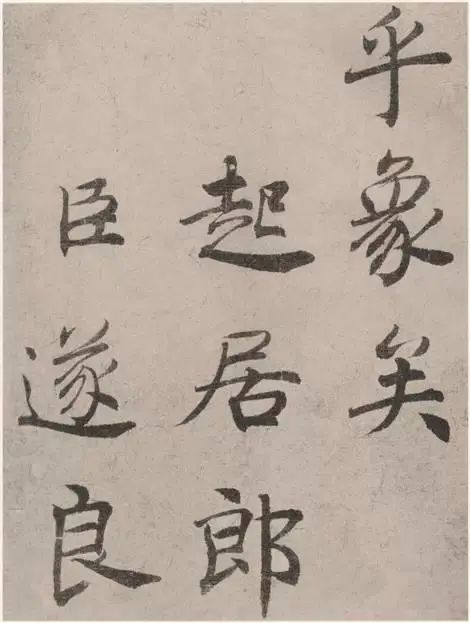 乎象矣
起居郎
臣遂良